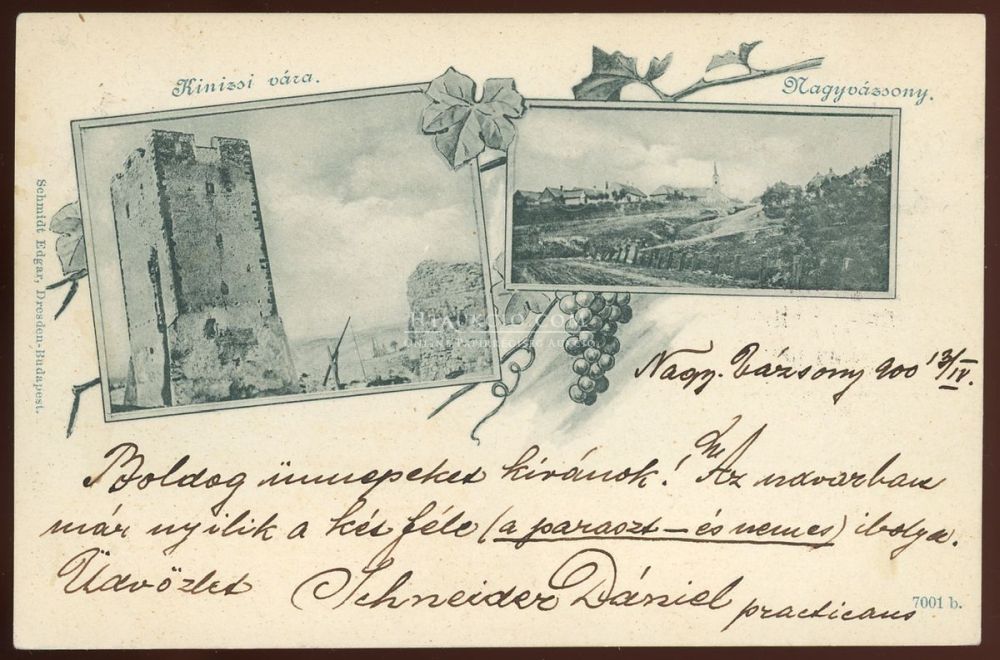 Kinizsi vára.
Nagyvázsony.
Schmidt Edgar, Dresden-Budapest.
ONLINE PAPÍRRÉGISÉG AUKCIÓ
Nagy. Vázsony 900 13/IV.
Boldog ünnepeket kívánok! Az udvarban
már nyílik a két féle (a paraszt – és nemes) ibolya.
Üdvözlet Schneider Dániel practicans
7001 b.